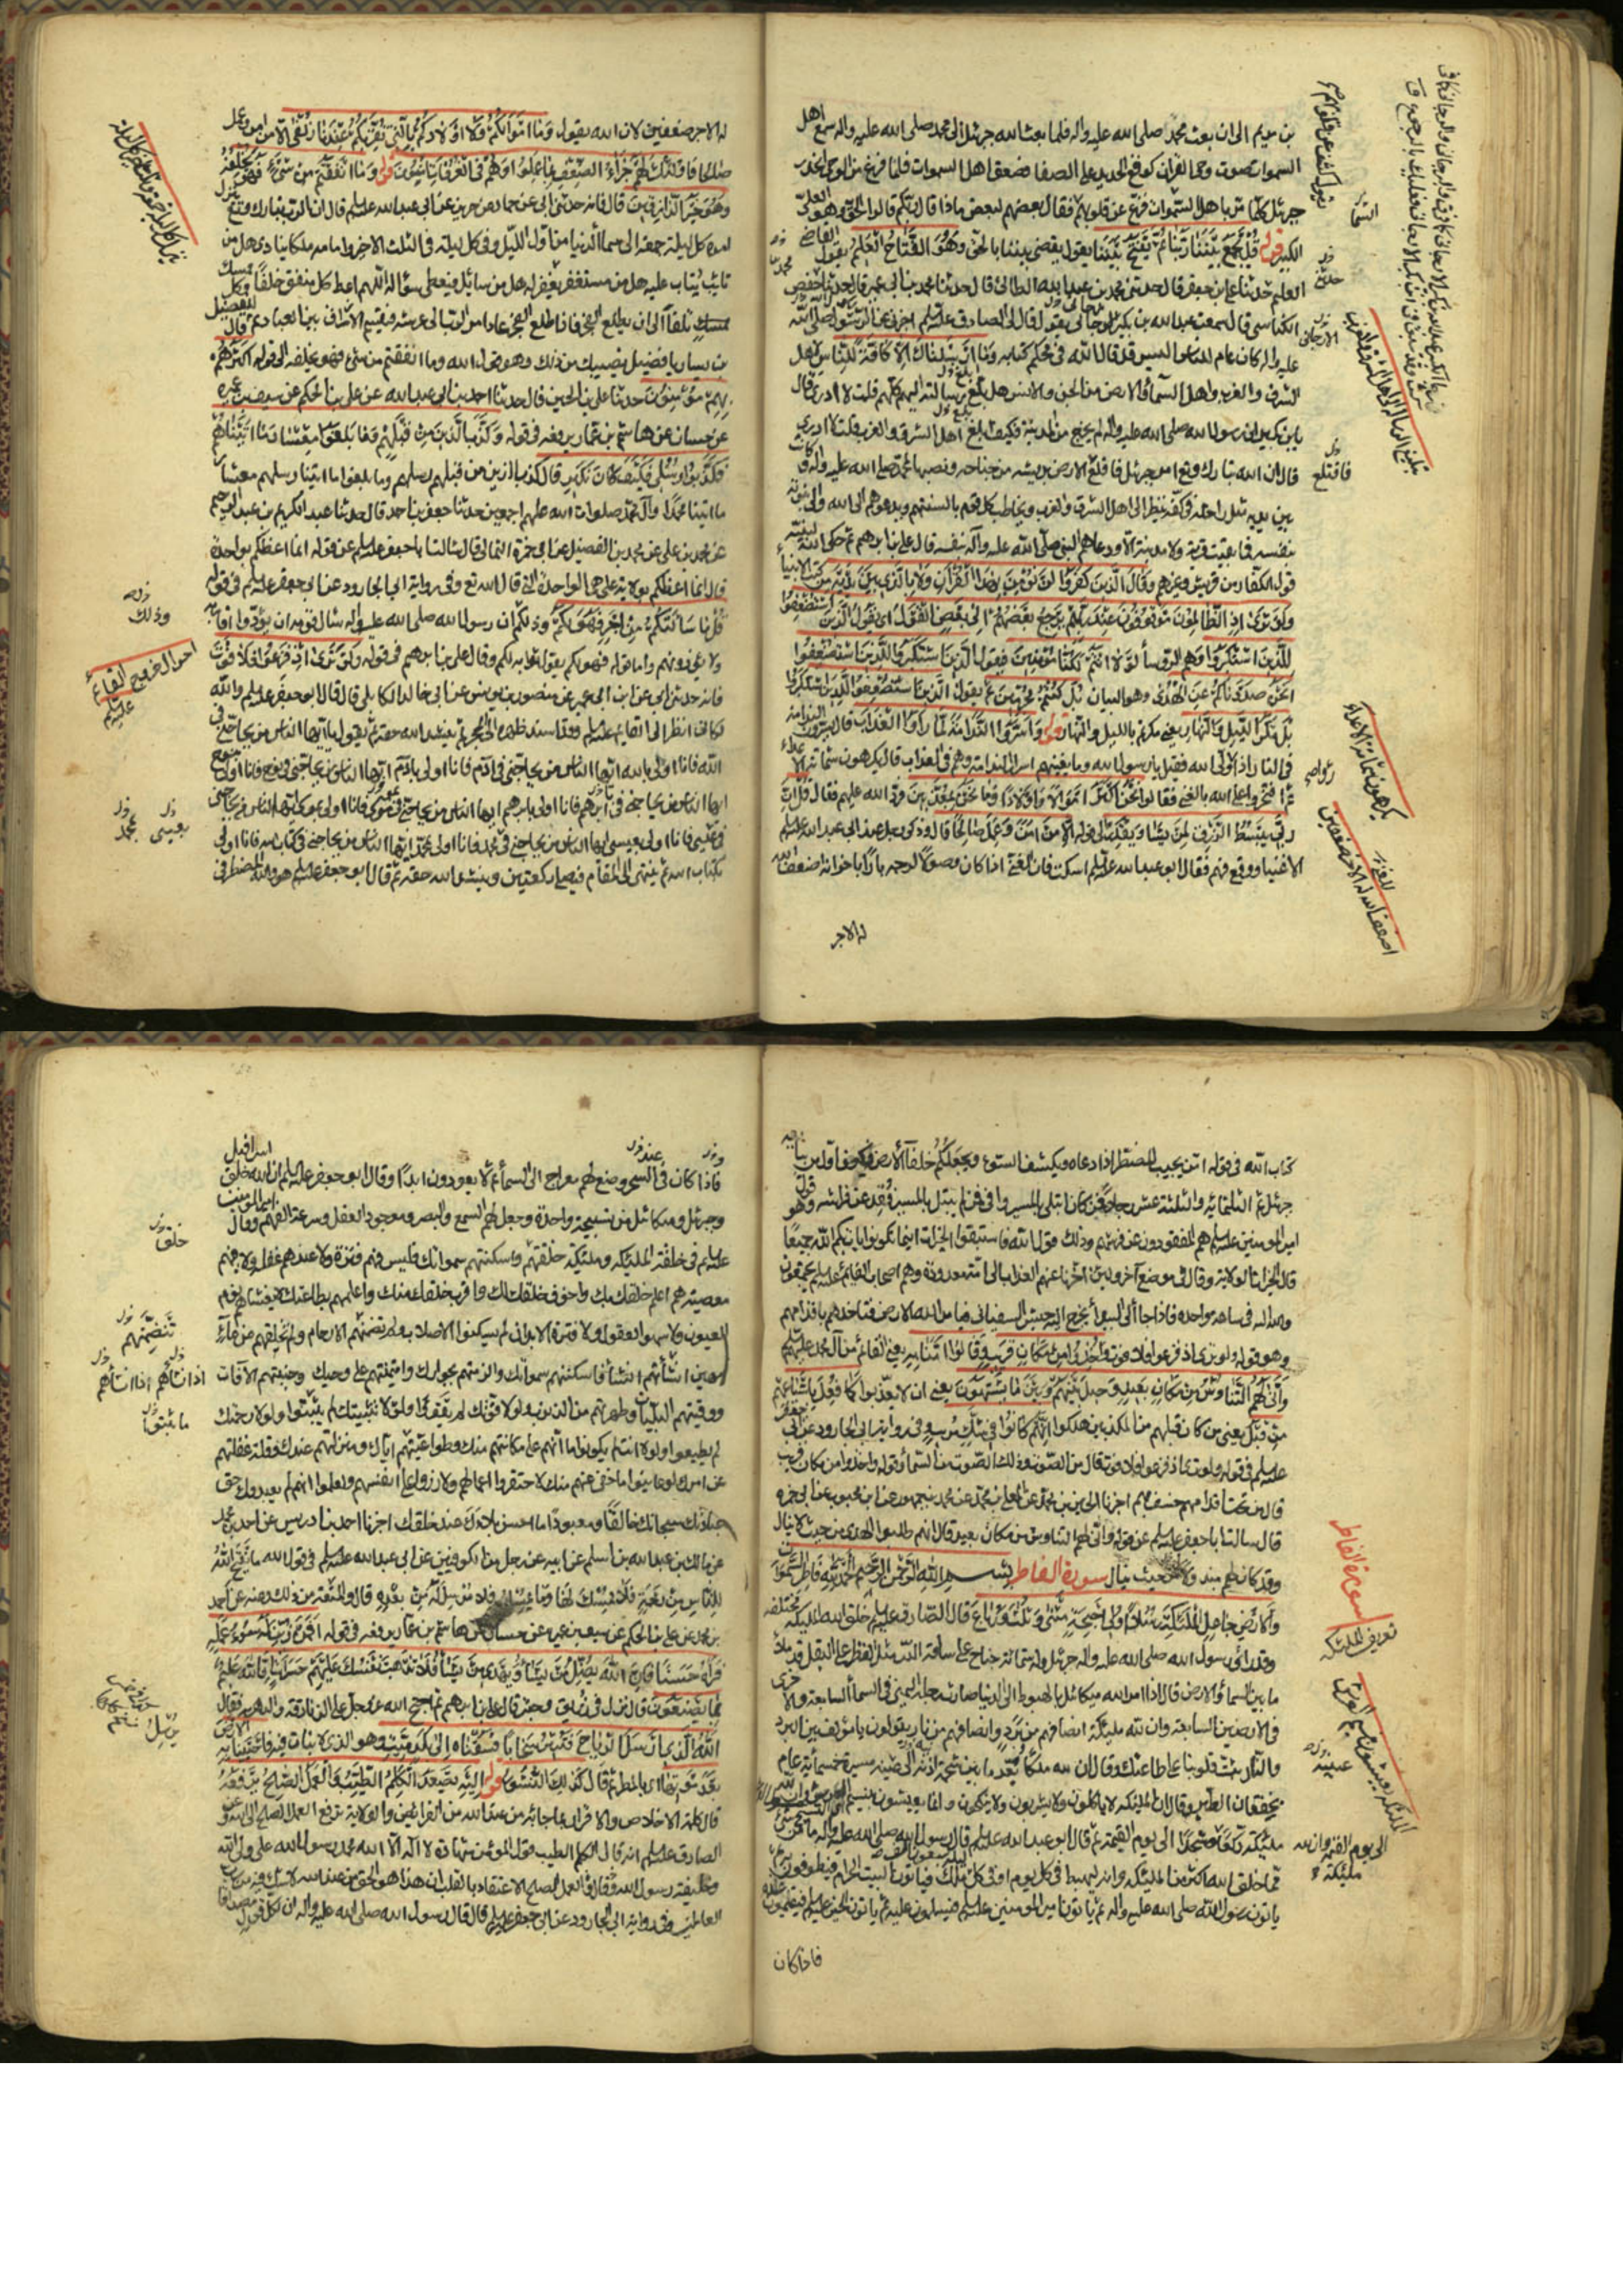 بن مريم الى ان بعث محمد صلى الله عليه واله فلما بعث الله جبرئيل الى محمد صلى الله عليه واله سمع اهل
السموات صوت وحى القران كوقع الحديد على الصفا فصعق اهل السموات فلما فرغ من الوحى انحدر
جبرئيل كلما مر باهل السموات فزع عن قلوبهم فقال بعضهم لبعض ماذا قال ربكم قالوا الحق وهو العلى
الكبير قوله قل يجمع بيننا ربنا ثم يفتح بيننا يقول يقضى بيننا بالحق وهو الفتاح العليم يقول القاضى
العليم حدثنا على بن جعفر قال حدثنى محمد بن عبد الله الطائى قال حدثنا محمد بن ابى عمير قال حدثنا حفص
الكناسى قال سمعت عبد الله بن بكر الارجانى يقول قال لى الصادق عليه السلم اخبرنى عن الرسول صلى الله
عليه واله كان عام للناس اليس قد قال الله فى محكم كتابه وما ارسلناك الا كافة للناس لاهل
الشرق والغرب واهل السماء والارض من الجن والانس هل بلغ رسالته اليهم كلهم قلت لا ادرى قال
يابن بكر ان رسول الله صلى الله عليه واله لم يخرج من المدينة فكيف بلغ اهل الشرق والغرب قلت لا ادرى
قال ان الله تبارك وتع امر جبرئيل فاقلع الارض بريشه من جناحه ونصبها لمحمد صلى الله عليه واله وكانت
بين يديه مثل راحته فى كفه ينظر الى اهل الشرق والغرب ويخاطب كل قوم بالسنتهم ويدعوهم الى الله والى نبوته
بنفسه فما بقيت قرية ولا مدينة الا ودعاهم النبى صلى الله عليه وآله بنفسه قال على بن ابرهيم ثم حكى الله لنبيه
قول الكفار من قريش وغيرهم وقال الذين كفروا لن نؤمن بهذا القرآن ولا بالذى بين يديه من كتب الانبياء
ولو ترى اذ الظالمون موقوفون عند ربهم يرجع بعضهم الى بعض القول يقول الذين استضعفوا
للذين استكبروا وهم الرؤساء لولا انتم لكنا مؤمنين فيقول الذين استكبروا للذين استضعفوا
انحن صددناكم عن الهدى وهو البيان بل كنتم مجرمين ثم يقول الذين استضعفوا للذين استكبروا
بل مكر الليل والنهار يعنى مكرتم بالليل والنهار قوله واسروا الندامة لما راوا العذاب قال يسرون الندامة
فى النار اذا راوا ولى الله فقيل يابن رسول الله وما يغنيهم اسرار الندامة وهم فى العذاب قال يكرهون شماتة الاعداء
ثم افتخروا على الله بالغنى فقالوا نحن اكثر اموالا واولادا وما نحن بمعذبين فرد الله عليهم فقال قل ان
ربى يبسط الرزق لمن يشاء ويقدر الى قوله الا من امن وعمل صالحا قال وذكر رجل عند ابى عبد الله عليه السلم
الاغنياء ووقع فيهم فقال ابو عبد الله عليه السلم اسكت فان الغنى اذا كان وصولا لرحمه بارا باخوانه اضعف الله
له الاجر
السماء
فاقتلع
تبليغ الرسالة لاهل الشرق والغرب
يكرهون شماتة الاعداء
له الاجر ضعفين لان الله يقول وما اموالكم ولا اولادكم بالتى تقربكم عندنا زلفى الا من امن وعمل
صالحا فاولئك لهم جزاء الضعف بما عملوا وهم فى الغرفات آمنون قوله وما انفقتم من شىء فهو يخلفه
وهو خير الرازقين قال فانه حدثنى ابى عن حماد عن حريز عن ابى عبد الله عليه السلم قال ان الرب تبارك وتع ينزل
امره كل ليلة جمعة الى سماء الدنيا من اول الليل وفى كل ليلة فى الثلث الاخير وامامه ملكا ينادى هل من
تائب يتاب عليه هل من مستغفر يغفر له هل من سائل فيعطى سؤله اللهم اعط كل منفق خلفا وكل ممسك
تلفا الى ان يطلع الفجر فاذا طلع الفجر عاد امر الرب الى عرشه فيقسم الارزاق بين العباد ثم قال للفضيل
بن يسار يا فضيل نصيبك من ذلك وهو قول الله وما انفقتم من شىء فهو يخلفه الى قوله اكثرهم
بهم مؤمنون حدثنا على بن الحسين قال حدثنا احمد بن ابى عبد الله عن على بن الحكم عن سيف بن عميره
عن حسان عن هاشم بن عمار يرفعه فى قوله وكذب الذين من قبلهم وما بلغوا معشار ما اتيناهم
فكذبوا رسلى فكيف كان نكير قال كذب الذين من قبلهم رسلهم وما بلغوا ما اتينا رسلهم معشار
ما اتينا محمدا وآل محمد صلوات الله عليهم اجمعين حدثنا جعفر بن احمد قال حدثنا عبد الكريم بن عبد الرحيم
عن محمد بن على عن محمد بن الفضيل عن ابى حمزة الثمالى قال سالت ابا جعفر عليه السلم عن قوله انما اعظكم بواحدة
قال انما اعظكم بولاية على هى الواحدة التى قال الله تع وفى رواية ابى الجارود عن ابى جعفر عليه السلم فى قوله
قل ما سالتكم من اجر فهو لكم وذلك ان رسول الله صلى الله عليه واله سال قومه ان يودوا اقاربه
ولا يؤذونهم واما قوله فهو لكم يقول ثوابه لكم وقال على بن ابرهيم فى قوله ولو ترى اذ فزعوا فلا فوت
فانه حدثنى ابى عن ابن ابى عمير عن منصور بن يونس عن ابى خالد الكابلى قال قال ابو جعفر عليه السلم والله
لكانى انظر الى القايم عليه السلم وقد اسند ظهره الى الحجر ثم ينشد الله حقه ثم يقول يا ايها الناس من يحاجنى فى
الله فانا اولى بالله ايها الناس من يحاجنى فى آدم فانا اولى بآدم ايها الناس من يحاجنى فى نوح فانا اولى بنوح
ايها الناس من يحاجنى فى ابرهيم فانا اولى بابرهيم ايها الناس من يحاجنى فى موسى فانا اولى بموسى ايها الناس من يحاجنى
فى عيسى فانا اولى بعيسى ايها الناس من يحاجنى فى محمد فانا اولى بمحمد ايها الناس من يحاجنى فى كتاب الله فانا اولى
بكتاب الله ثم ينتهى الى المقام فيصلى ركعتين وينشد الله حقه ثم قال ابو جعفر عليه السلم هو والله المضطر فى
وذلك
احوال خروج القايم عليه السلم
بعيسى
بمحمد
كتاب الله فى قوله امن يجيب المضطر اذا دعاه ويكشف السوء ويجعلكم خلفاء الارض فيكون اول من يبايعه
جبرئيل ثم الثلثمائه والثلثة عشر رجلا فمن كان ابتلى بالمسير وافى ومن لم يبتل بالمسير فقد عن فراشه وهو قول
امير المومنين عليه السلم هم المفقودون عن فرشهم وذلك قول الله فاستبقوا الخيرات اينما تكونوا يات بكم الله جميعا
قال الخيرات الولاية وقال فى موضع آخر ولئن اخرنا عنهم العذاب الى امة معدودة وهم اصحاب القايم عليه السلم يجتمعون
والله اليه فى ساعة واحدة فاذا جاء الى البيداء يخرج اليه جيش السفيانى فيامر الله الارض فتاخذهم باقدامهم
وهو قوله ولو ترى اذ فزعوا فلا فوت واخذوا من مكان قريب وقالوا آمنا به يعنى بالقائم من آل محمد عليهم السلم
وانى لهم التناوش من مكان بعيد وحيل بينهم وبين ما يشتهون يعنى ان لا يعذبوا كما فعل باشياعهم
من قبل يعنى من كان قبلهم من المكذبين هلكوا انهم كانوا فى شك مريب وفى رواية ابى الجارود عن ابى جعفر
عليه السلم فى قوله ولو ترى اذ فزعوا فلا فوت قال من الصوت وذلك الصوت من السماء وقوله واخذوا من مكان قريب
قال من تحت اقدامهم خسف بهم اخبرنا الحسين بن محمد عن المعلى بن محمد عن محمد بن جمهور عن ابن محبوب عن ابى حمزه
قال سالت ابا جعفر عليه السلم عن قوله وانى لهم التناوش من مكان بعيد قال انهم طلبوا الهدى من حيث لا ينال
وقد كان لهم مبذولا من حيث ينال سورة الفاطر بسم الله الرحمن الرحيم الحمد لله فاطر السموات
والارض جاعل الملئكة رسلا اولى اجنحة مثنى وثلث ورباع قال الصادق عليه السلم خلق الله الملئكة مختلفه
وقد راى رسول الله صلى الله عليه واله جبرئيل وله ستمائة جناح على ساقه الدر مثل القطر على البقل قد ملأ
ما بين السماء والارض قال اذا امر الله ميكائيل بالهبوط الى الدنيا صارت رجله اليمنى فى السماء السابعة والاخرى
فى الارض السابعة وان لله مليئكة انصافهم من برد وانصافهم من نار يقولون يا مؤلف بين البرد
والنار ثبت قلوبنا على طاعتك وقال ان لله ملكا بعد ما بين شحمة اذنه الى عينه مسيرة خمسمائة عام
بخفقان الطير وقال ان الملئكة لا ياكلون ولا يشربون ولا ينكحون وانما يعيشون بنسيم العرش وان لله
مليئكة ركعا وسجدا الى يوم القيمة ثم قال ابو عبد الله عليه السلم قال رسول الله صلى الله عليه واله ما من شىء
مما خلق الله اكثر من الملئكة وانه ليهبط فى كل يوم او فى كل ليلة سبعون الف ملك فياتون البيت الحرام فيطوفون به ثم
ياتون رسول الله صلى الله عليه واله ثم ياتون امير المومنين عليه السلم فيسلمون عليه ثم ياتون الحسين عليه السلم فيقيمون عنده
فاذا كان
سورة الفاطر
تعريف الملئكة
الملئكة يعيشون بنسيم العرش
عينيه
الى يوم القيمة وان لله مليئكة
فاذا كان فى السحر وضع لهم معراج الى السماء ثم لا يعودون ابدا وقال ابو جعفر عليه السلم ان الله خلق اسرافيل
وجبرئيل وميكائيل من تسبيحة واحدة وجعل لهم السمع والبصر وموجود العقل وسرعة الفهم وقال امير المومنين
عليه السلم فى خلقة الملئكة ومليئكة خلقتهم واسكنتهم سمواتك فليس فيهم فترة ولا عندهم غفلة ولا فيهم
معصية هم اعلم خلقك بك واخوف خلقك لك واقرب خلقك منك واعلمهم بطاعتك لا يغشاهم نوم
العيون ولا سهو العقول ولا فترة الابدان لم يسكنوا الاصلاب ولم تضمنهم الارحام ولم تخلقهم من ماء
مهين انشاتهم انشاء فاسكنتهم سمواتك واكرمتهم بجوارك وائتمنتهم على وحيك وجنبتهم الآفات
ووقيتهم البليات وطهرتهم من الذنوب ولولا قوتك لم يقووا ولولا تثبيتك لم يثبتوا ولولا رحمتك
لم يطيعوا ولولا انت لم يكونوا اما انهم على مكانتهم منك وطواعيتهم اياك ومنزلتهم عندك وقلة غفلتهم
عن امرك لو عاينوا ما خفى عنهم منك لاحتقروا اعمالهم ولازروا على انفسهم ولعلموا انهم لم يعبدوك حق
عبادتك سبحانك خالقا ومعبودا ما احسن بلاءك عند خلقك اخبرنا احمد بن ادريس عن احمد بن محمد
عن مالك بن عبد الله بن اسلم عن ابيه عن رجل من الكوفيين عن ابى عبد الله عليه السلم فى قول الله ما يفتح الله
للناس من رحمة فلا ممسك لها وما يمسك فلا مرسل له من بعده قال والمتعة من ذلك وعنه عن احمد
بن محمد عن على بن الحكم عن سيف بن عميره عن حسان عن هاشم بن عمار يرفعه فى قوله افمن زين له سوء عمله
فرآه حسنا فان الله يضل من يشاء ويهدى من يشاء فلا تذهب نفسك عليهم حسرات ان الله عليم
بما يصنعون قال نزلت فى زريق وحبتر قال على بن ابرهيم ثم احتج الله عز وجل على الزنادقة والدهرية فقال
الله الذى ارسل الرياح فتثير سحابا فسقناه الى بلد ميت وهو الذى لا نبات فيه فاحيينا به الارض
بعد موتها اى بالمطر ثم قال كذلك النشور قوله اليه يصعد الكلم الطيب والعمل الصالح يرفعه
قال كلمة الاخلاص والاقرار بما جاء به من عند الله من الفرائض والولاية ترفع العمل الصلح الى الله وعن
الصادق عليه السلم انه قال الكلم الطيب قول المؤمن شهادة لا اله الا الله محمد رسول الله على ولى الله
وخليفة رسول الله وقال والعمل الصلح الاعتقاد بالقلب ان هذا هو الحق من عند الله لا شك فيه من رب
العالمين وفى رواية ابى الجارود عن ابى جعفر عليه السلم قال قال رسول الله صلى الله عليه واله ان لكل قول مصداقا
خلق
تتضمنهم
اذ انشاتهم